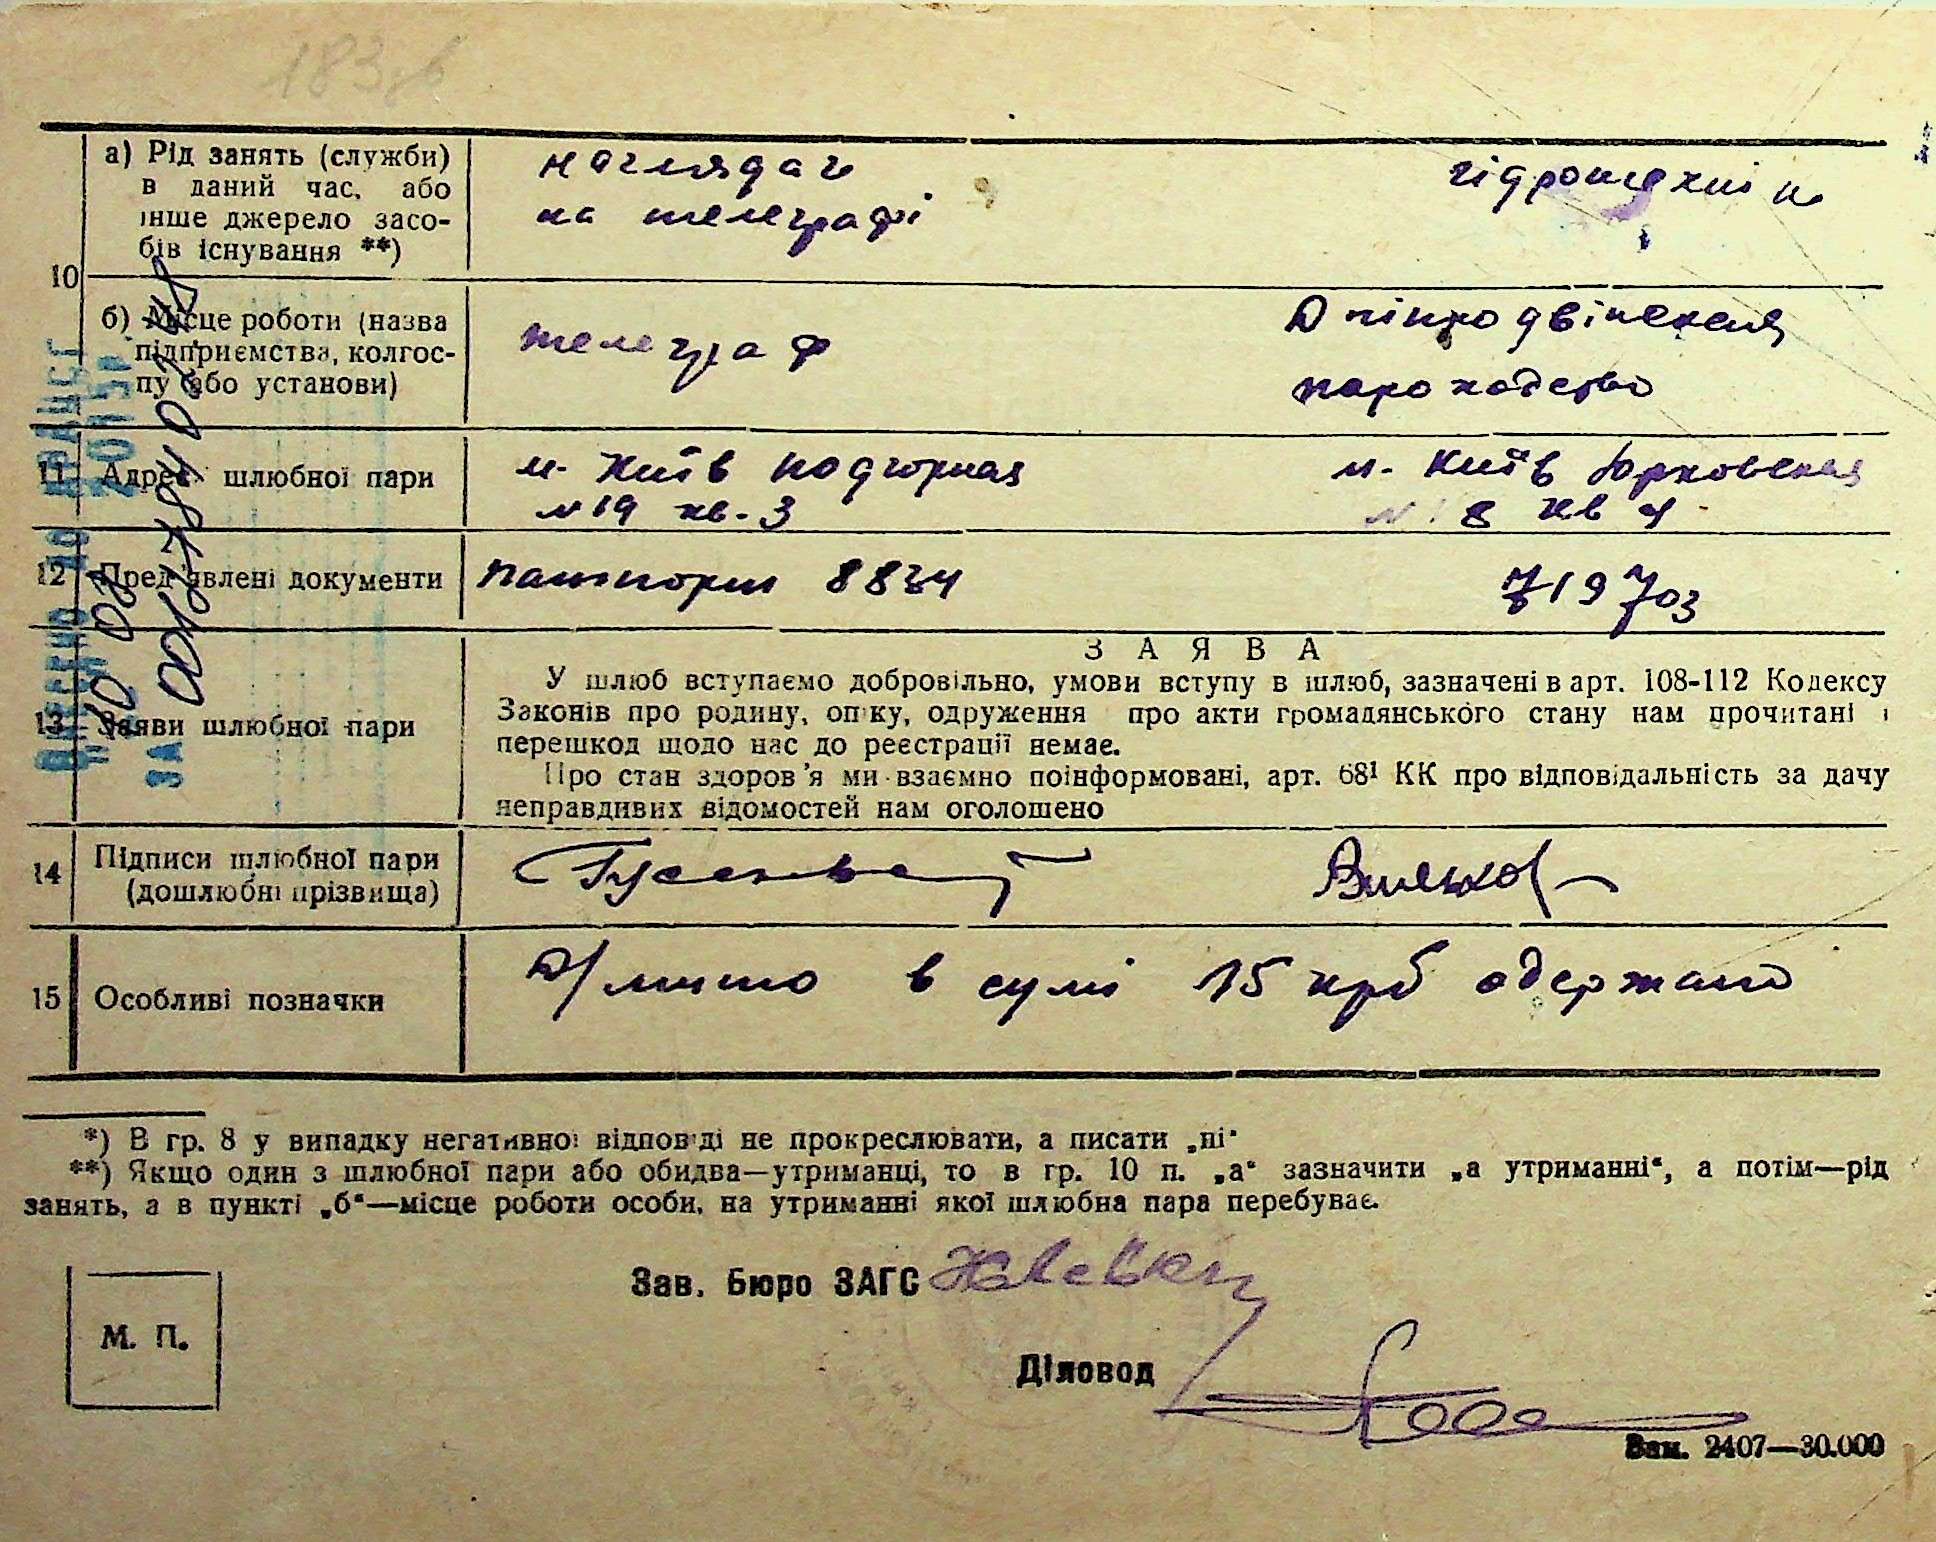 183
а) Рід занять (служби) в даний час, або інше джерело засобів існування **)
наглядач
на телеграфі
гідротехнік
10
б) Місце роботи (назва підприємства, колгоспу або установи)
телеграф
Дніпродвінская
пароходство
11 Адреса шлюбної пари
м. Київ Подгорная
№ 19 кв. 3
м. Київ Юрковская
№ 8 кв 4
12 Пред'явлені документи
пашпорт 8834
719703
ВНЕСЕНО ДО ДРАЦСГ
2015р.
ЗА
00127784028
13 Заяви шлюбної пари
ЗАЯВА
У шлюб вступаємо добровільно, умови вступу в шлюб, зазначені в арт. 108-112 Кодексу
Законів про родину, опіку, одруження про акти громадянського стану нам прочитані і
перешкод щодо нас до реєстрації немає.
Про стан здоров'я ми взаємно поінформовані, арт. 68¹ КК про відповідальність за дачу
неправдивих відомостей нам оголошено
14 Підписи шлюбної пари (дошлюбні прізвища)
15 Особливі позначки
Д/мито в сумі 15 крб одержано
*) В гр. 8 у випадку негативної відповіді не прокреслювати, а писати „ні“
**) Якщо один з шлюбної пари або обидва—утриманці, то в гр. 10 п. „а“ зазначити „а утриманні“, а потім—рід
занять, а в пункті „б“—місце роботи особи, на утриманні якої шлюбна пара перебуває.
Зав. Бюро ЗАГС
М. П.
Діловод
Зам. 2407—30.000